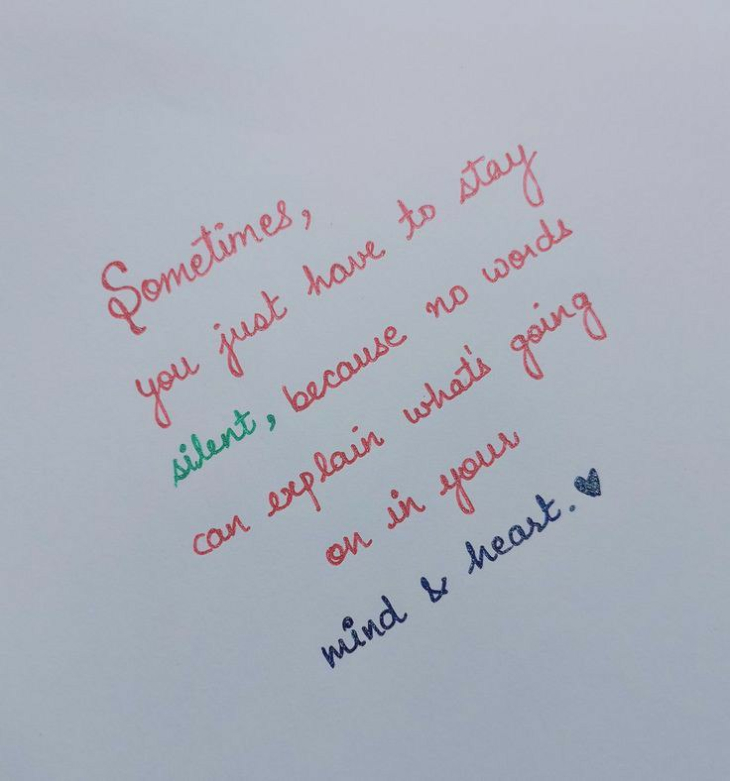 Sometimes,
you just have to stay
silent, because no words
can explain what's going
on in your
mind & heart.